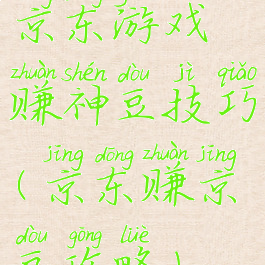 京东游戏
zhuàn shén dòu jì qiǎo
赚神豆技巧
jīng dōng zhuàn jīng
(京东赚京
dòu gōng lüè
豆攻略)